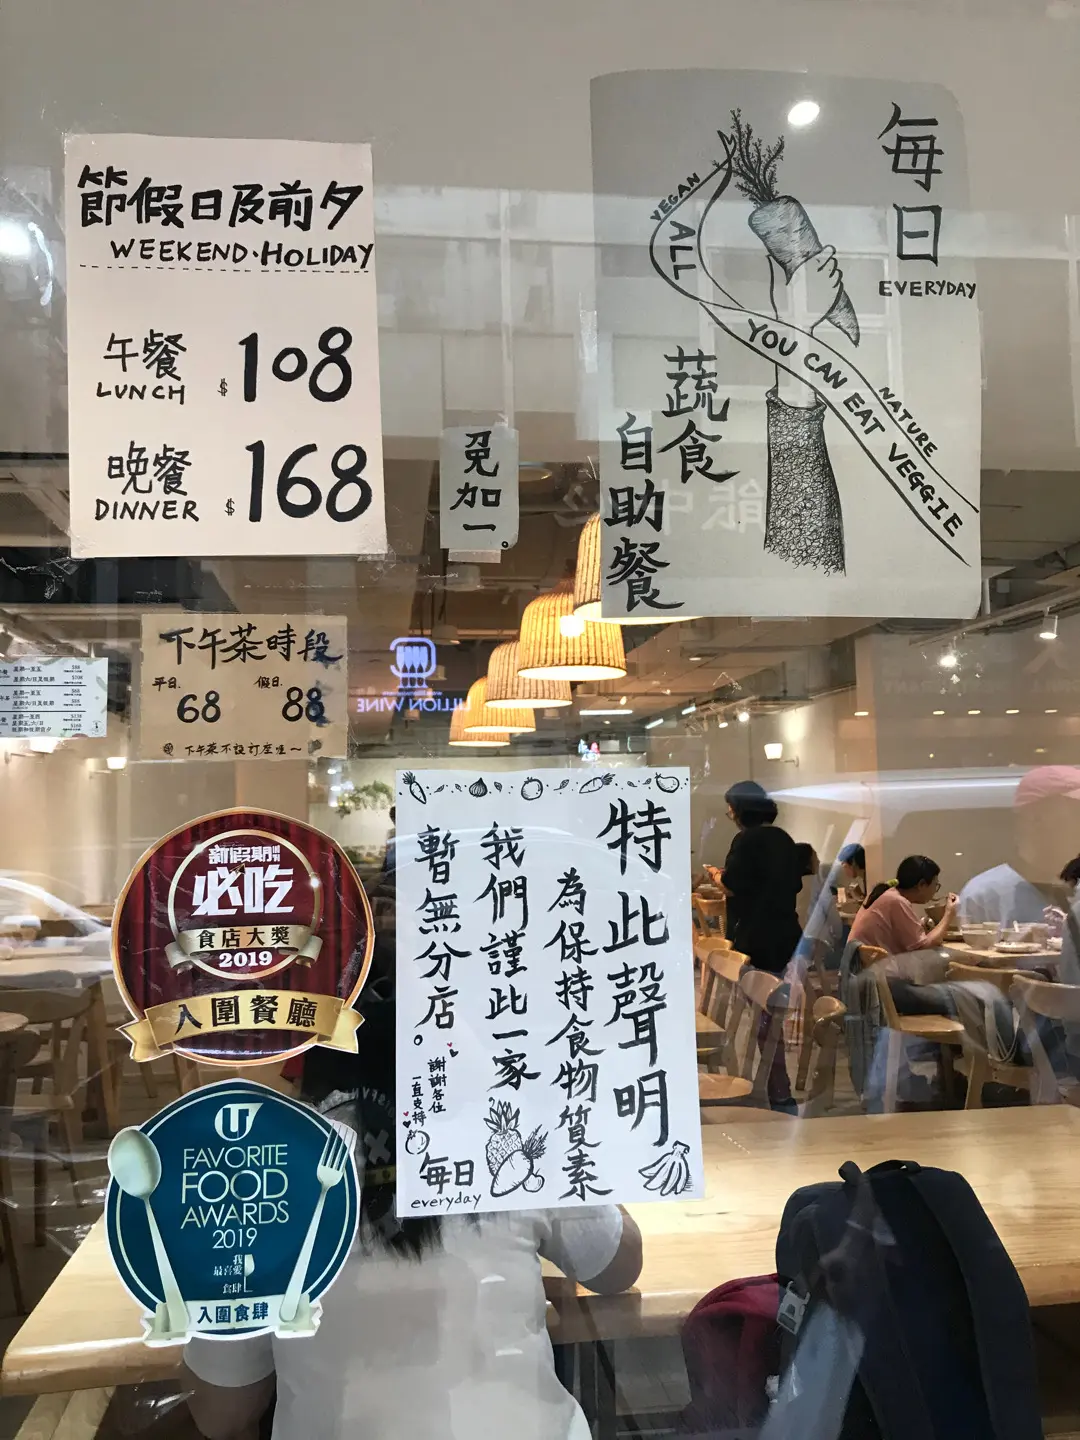 節假日及前夕
WEEKEND·HOLIDAY
午餐
LUNCH $108
晚餐
DINNER $168
免加一。
每日
EVERYDAY
VEGAN
ALL
YOU CAN EAT VEGGIE
NATURE
蔬食
自助餐
下午茶時段
平日. 假日.
68 88
下午茶不設訂座哇～
星期一至五
LILLION WINE
新假期
必吃
食店大獎
2019
入圍餐廳
U
FAVORITE
FOOD
AWARDS
2019
我
最喜愛
食肆
入圍食肆
特此聲明
為保持食物質素
我們謹此一家
暫無分店。
謝謝各位
一直支持
每日
everyday